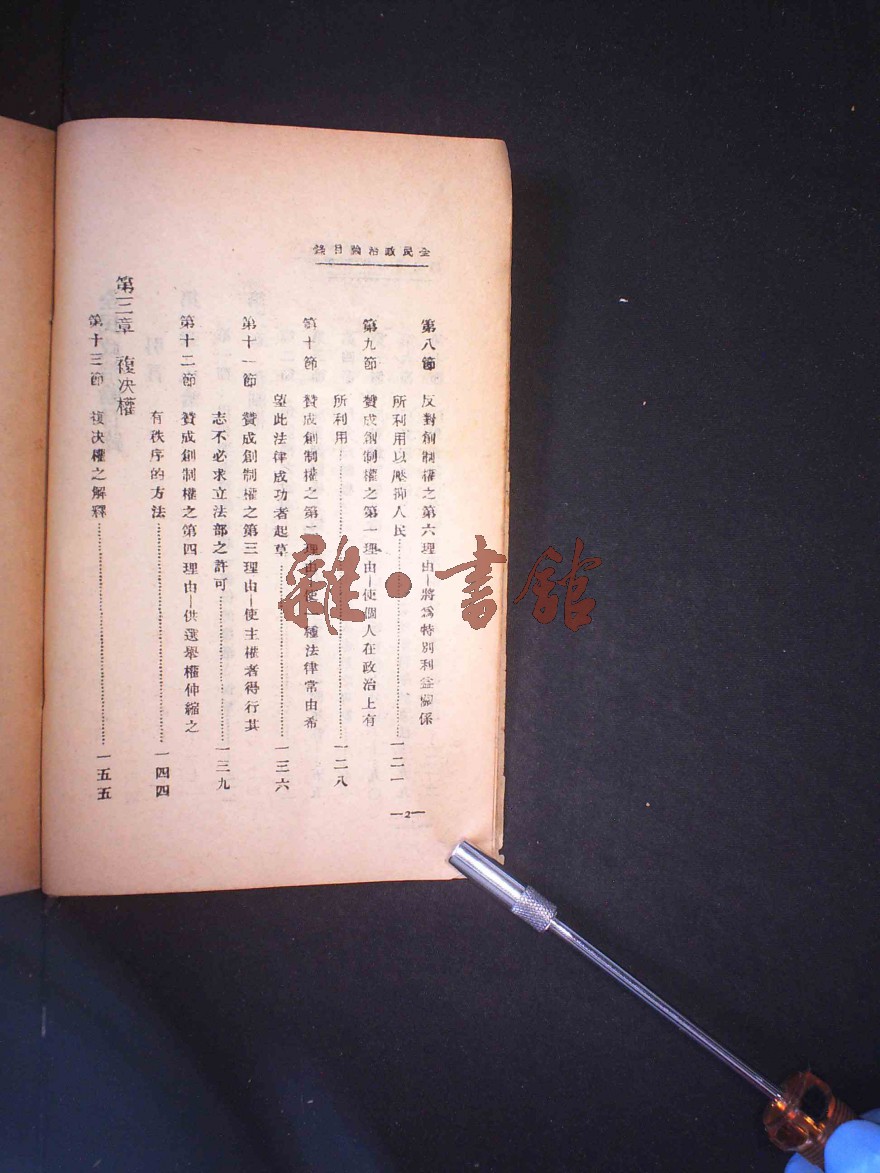 全民政治論目錄
第八節 反對創制權之第六理由—將爲特別利益關係
所利用以壓抑人民…………一二一
第九節 贊成創制權之第一理由—使個人在政治上有
所利用…………一二八
第十節 贊成創制權之第二理由—使一種法律常由希
望此法律成功者起草…………一三六
第十一節 贊成創制權之第三理由—使主權者得行其
志不必求立法部之許可…………一三九
第十二節 贊成創制權之第四理由—供選舉權伸縮之
有秩序的方法…………一四四
第三章 複决權
第十三節 複决權之解釋…………一五五
—2—
雜·書館